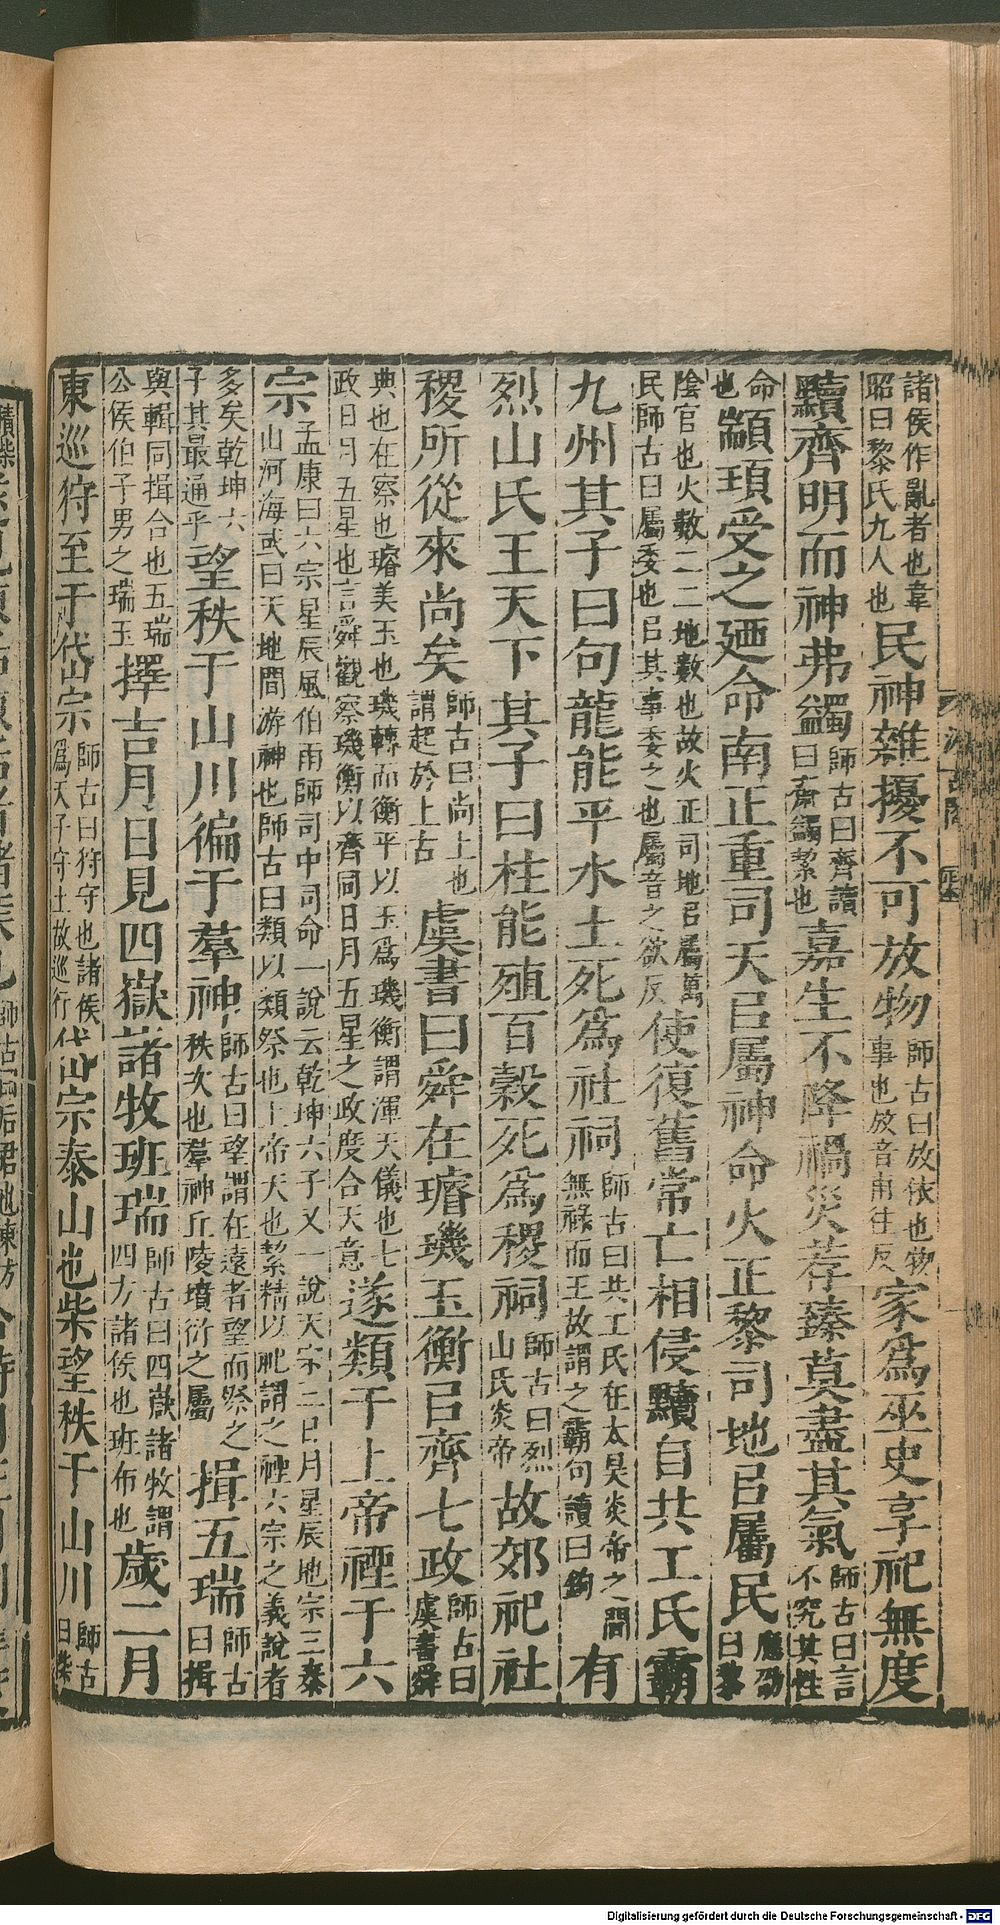 諸侯作亂者也韋
昭曰黎氏九人也
民神雜擾不可放物
師古曰放依也物
事也放音甫往反
家爲巫史享祀無度
黷齊明而神弗蠲
師古曰齊讀
曰齋蠲絜也
嘉生不降禍災荐臻莫盡其氣
師古曰言
不究其性
命
也
顓頊受之廼命南正重司天㠯屬神命火正黎司地㠯屬民
應劭
曰黎
陰官也火數二二地數也故火正司地㠯屬萬
民師古曰屬委也㠯其事委之也屬音之欲反
使復舊常亡相侵黷自共工氏霸
九州其子曰句龍能平水土死爲社祠
師古曰共工氏在太昊炎帝之間
無祿而王故謂之霸句讀曰鉤
有
烈山氏王天下其子曰柱能殖百穀死爲稷祠
師古曰烈
山氏炎帝
故郊祀社
稷所從來尚矣
師古曰尚上也
謂起於上古
虞書曰舜在璿璣玉衡㠯齊七政
師古曰
虞書舜
典也在察也璿美玉也璣轉而衡平以玉爲璣衡謂渾天儀也七
政日月五星也言舜觀察璣衡以齊同日月五星之政度合天意
遂類于上帝禋于六
宗
孟康曰六宗星辰風伯雨師司中司命一說云乾坤六子又一說天宗三日月星辰地宗三泰
山河海或曰天地間游神也師古曰類以類祭也上帝天也絜精以祀謂之禋六宗之義說者
多矣乾坤六
子其最通乎
望秩于山川徧于羣神
師古曰望謂在遠者望而祭之
秩次也羣神丘陵墳衍之屬
揖五瑞
師古
曰揖
與輯同揖合也五瑞
公侯伯子男之瑞玉
擇吉月日見四嶽諸牧班瑞
師古曰四嶽諸牧謂
四方諸侯也班布也
歲二月
東巡狩至于岱宗
師古曰狩守也諸侯
爲天子守土故巡行
岱宗泰山也柴望秩于山川
師古
曰柴